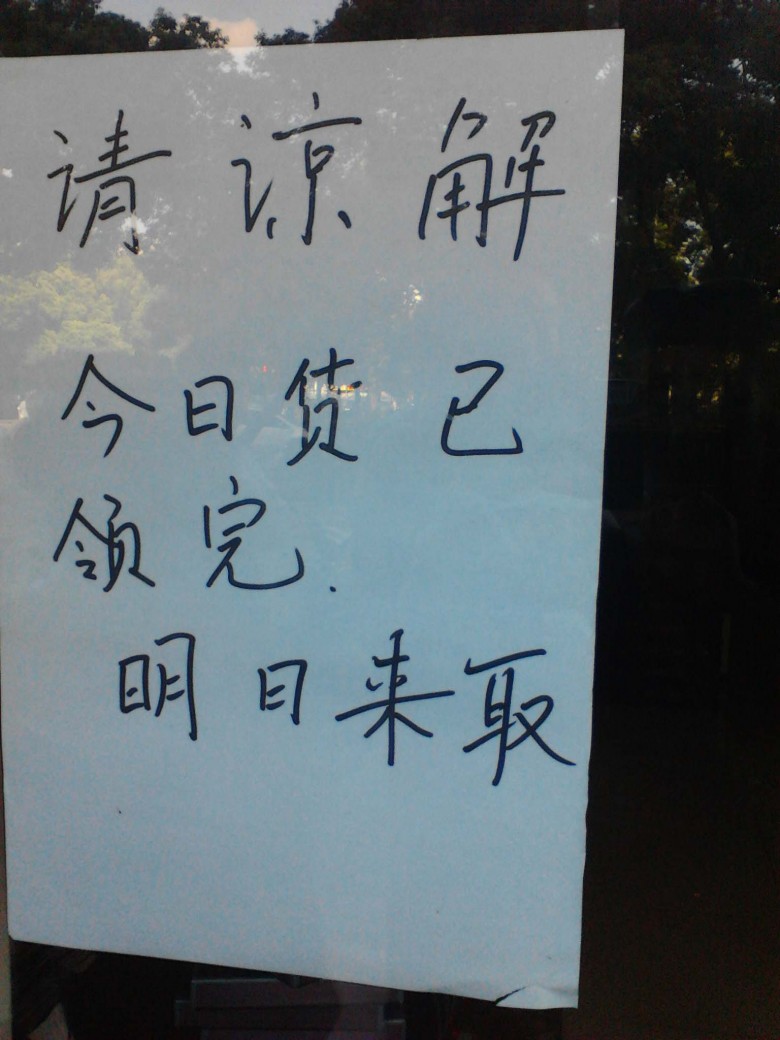 请谅解
今日货已
领完.
明日来取